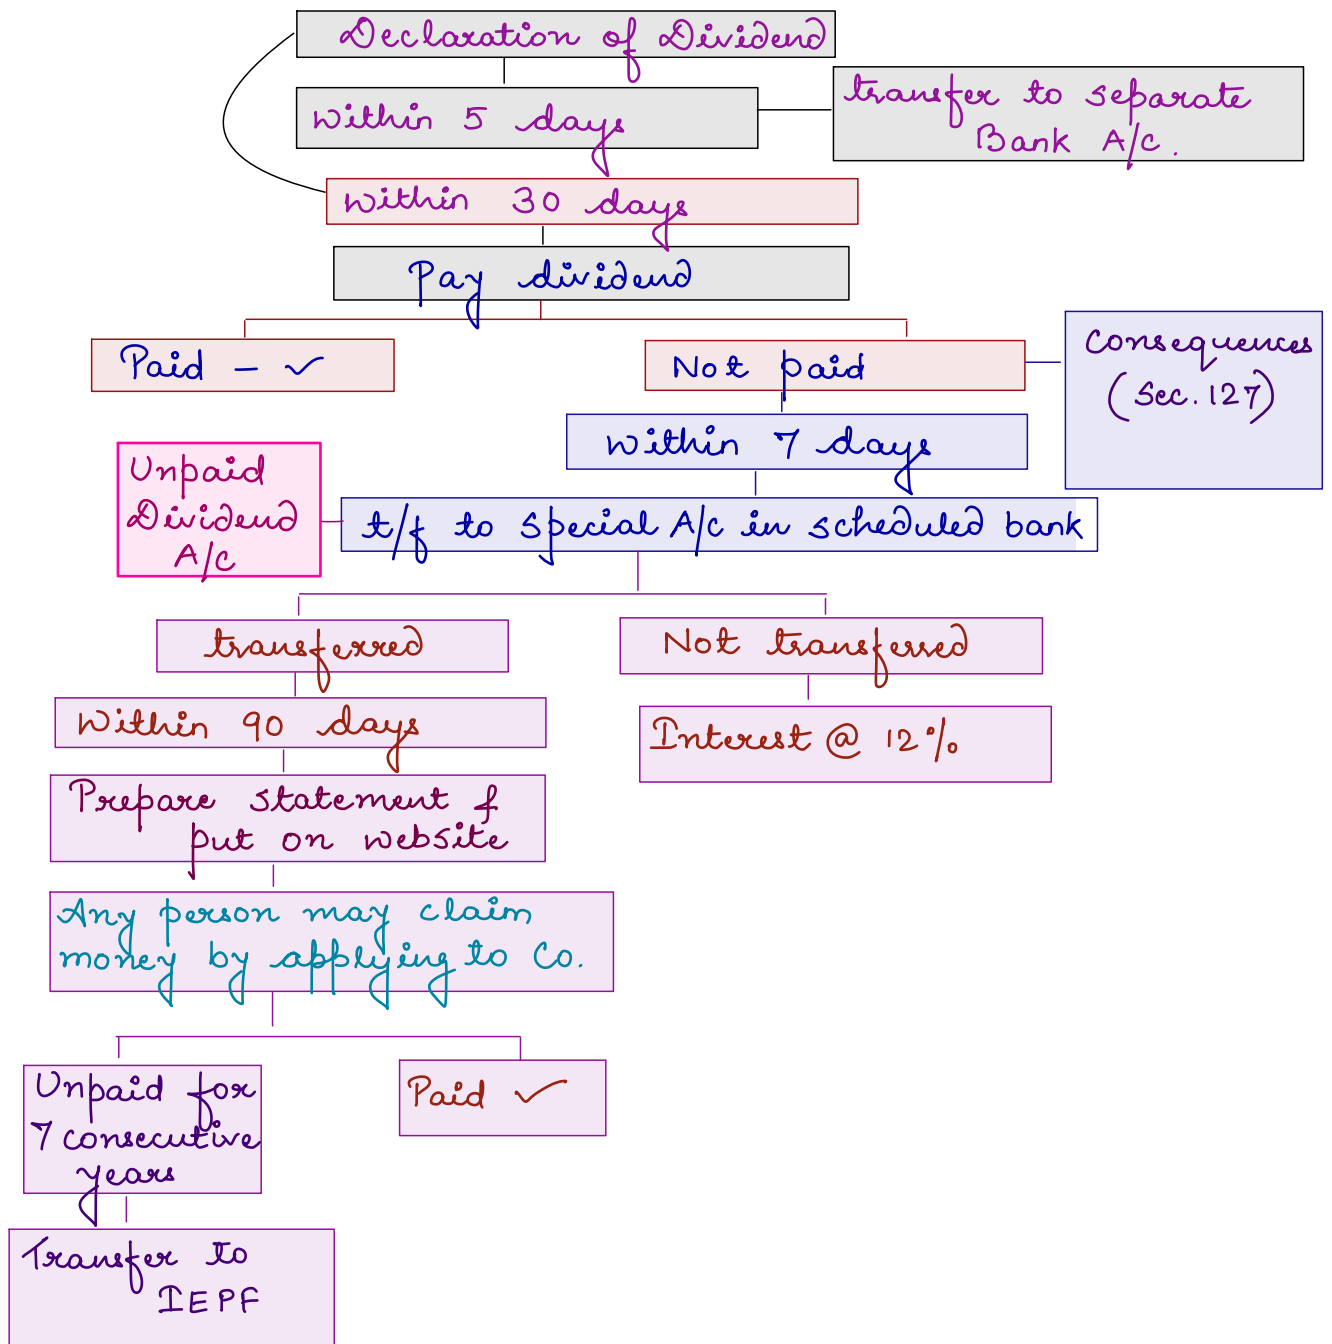 Declaration of Dividend
Within 5 days
transfer to separate
Bank A/c.
Within 30 days
Pay dividend
Paid - ✓
Not paid
Consequences
(Sec. 127)
Within 7 days
Unpaid
Dividend
A/c
t/f to special A/c in scheduled bank
transferred
Not transferred
Within 90 days
Interest @ 12%
Prepare statement &
put on website
Any person may claim
money by applying to Co.
Unpaid for
7 consecutive
years
Paid ✓
Transfer to
IEPF